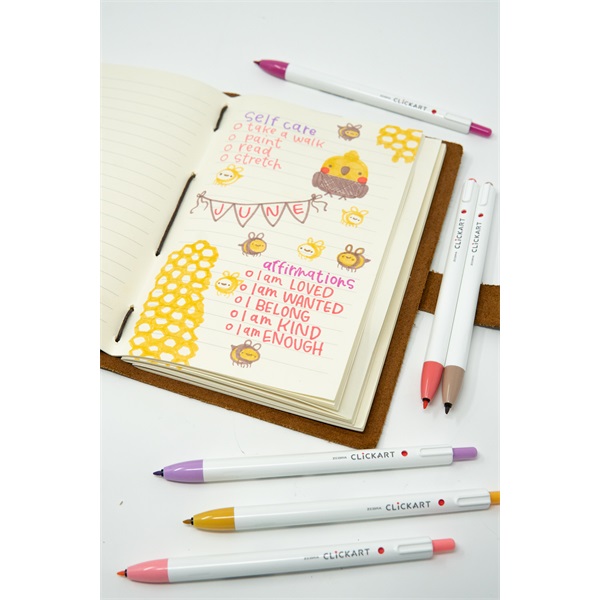 self care
take a walk
paint
read
stretch
JUNE
affirmations
I am LOVED
I am WANTED
I BELONG
I am KIND
I am ENOUGH
CLiCKART
CLiCKART
CLiCKART
ZEBRA CLiCKART
ZEBRA CLiCKART
ZEBRA CLiCKART